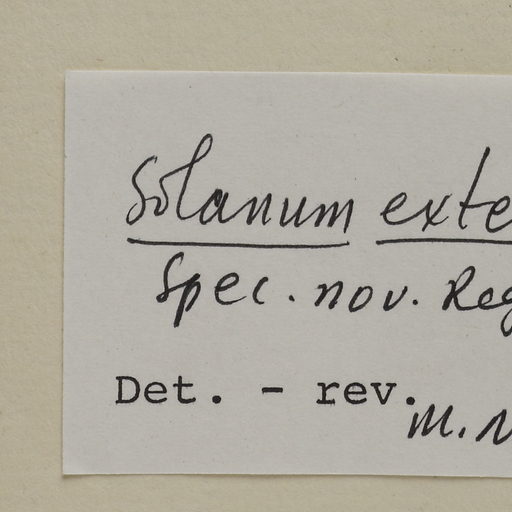 Solanum exte
Spec. nov. Reg
Det. - rev.
M. N